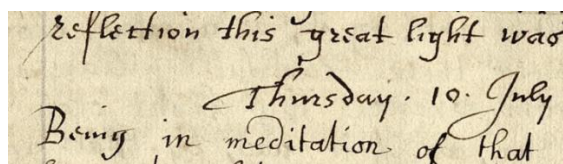 reflection this great light was
Thursday. 10. July
Being in meditation of that